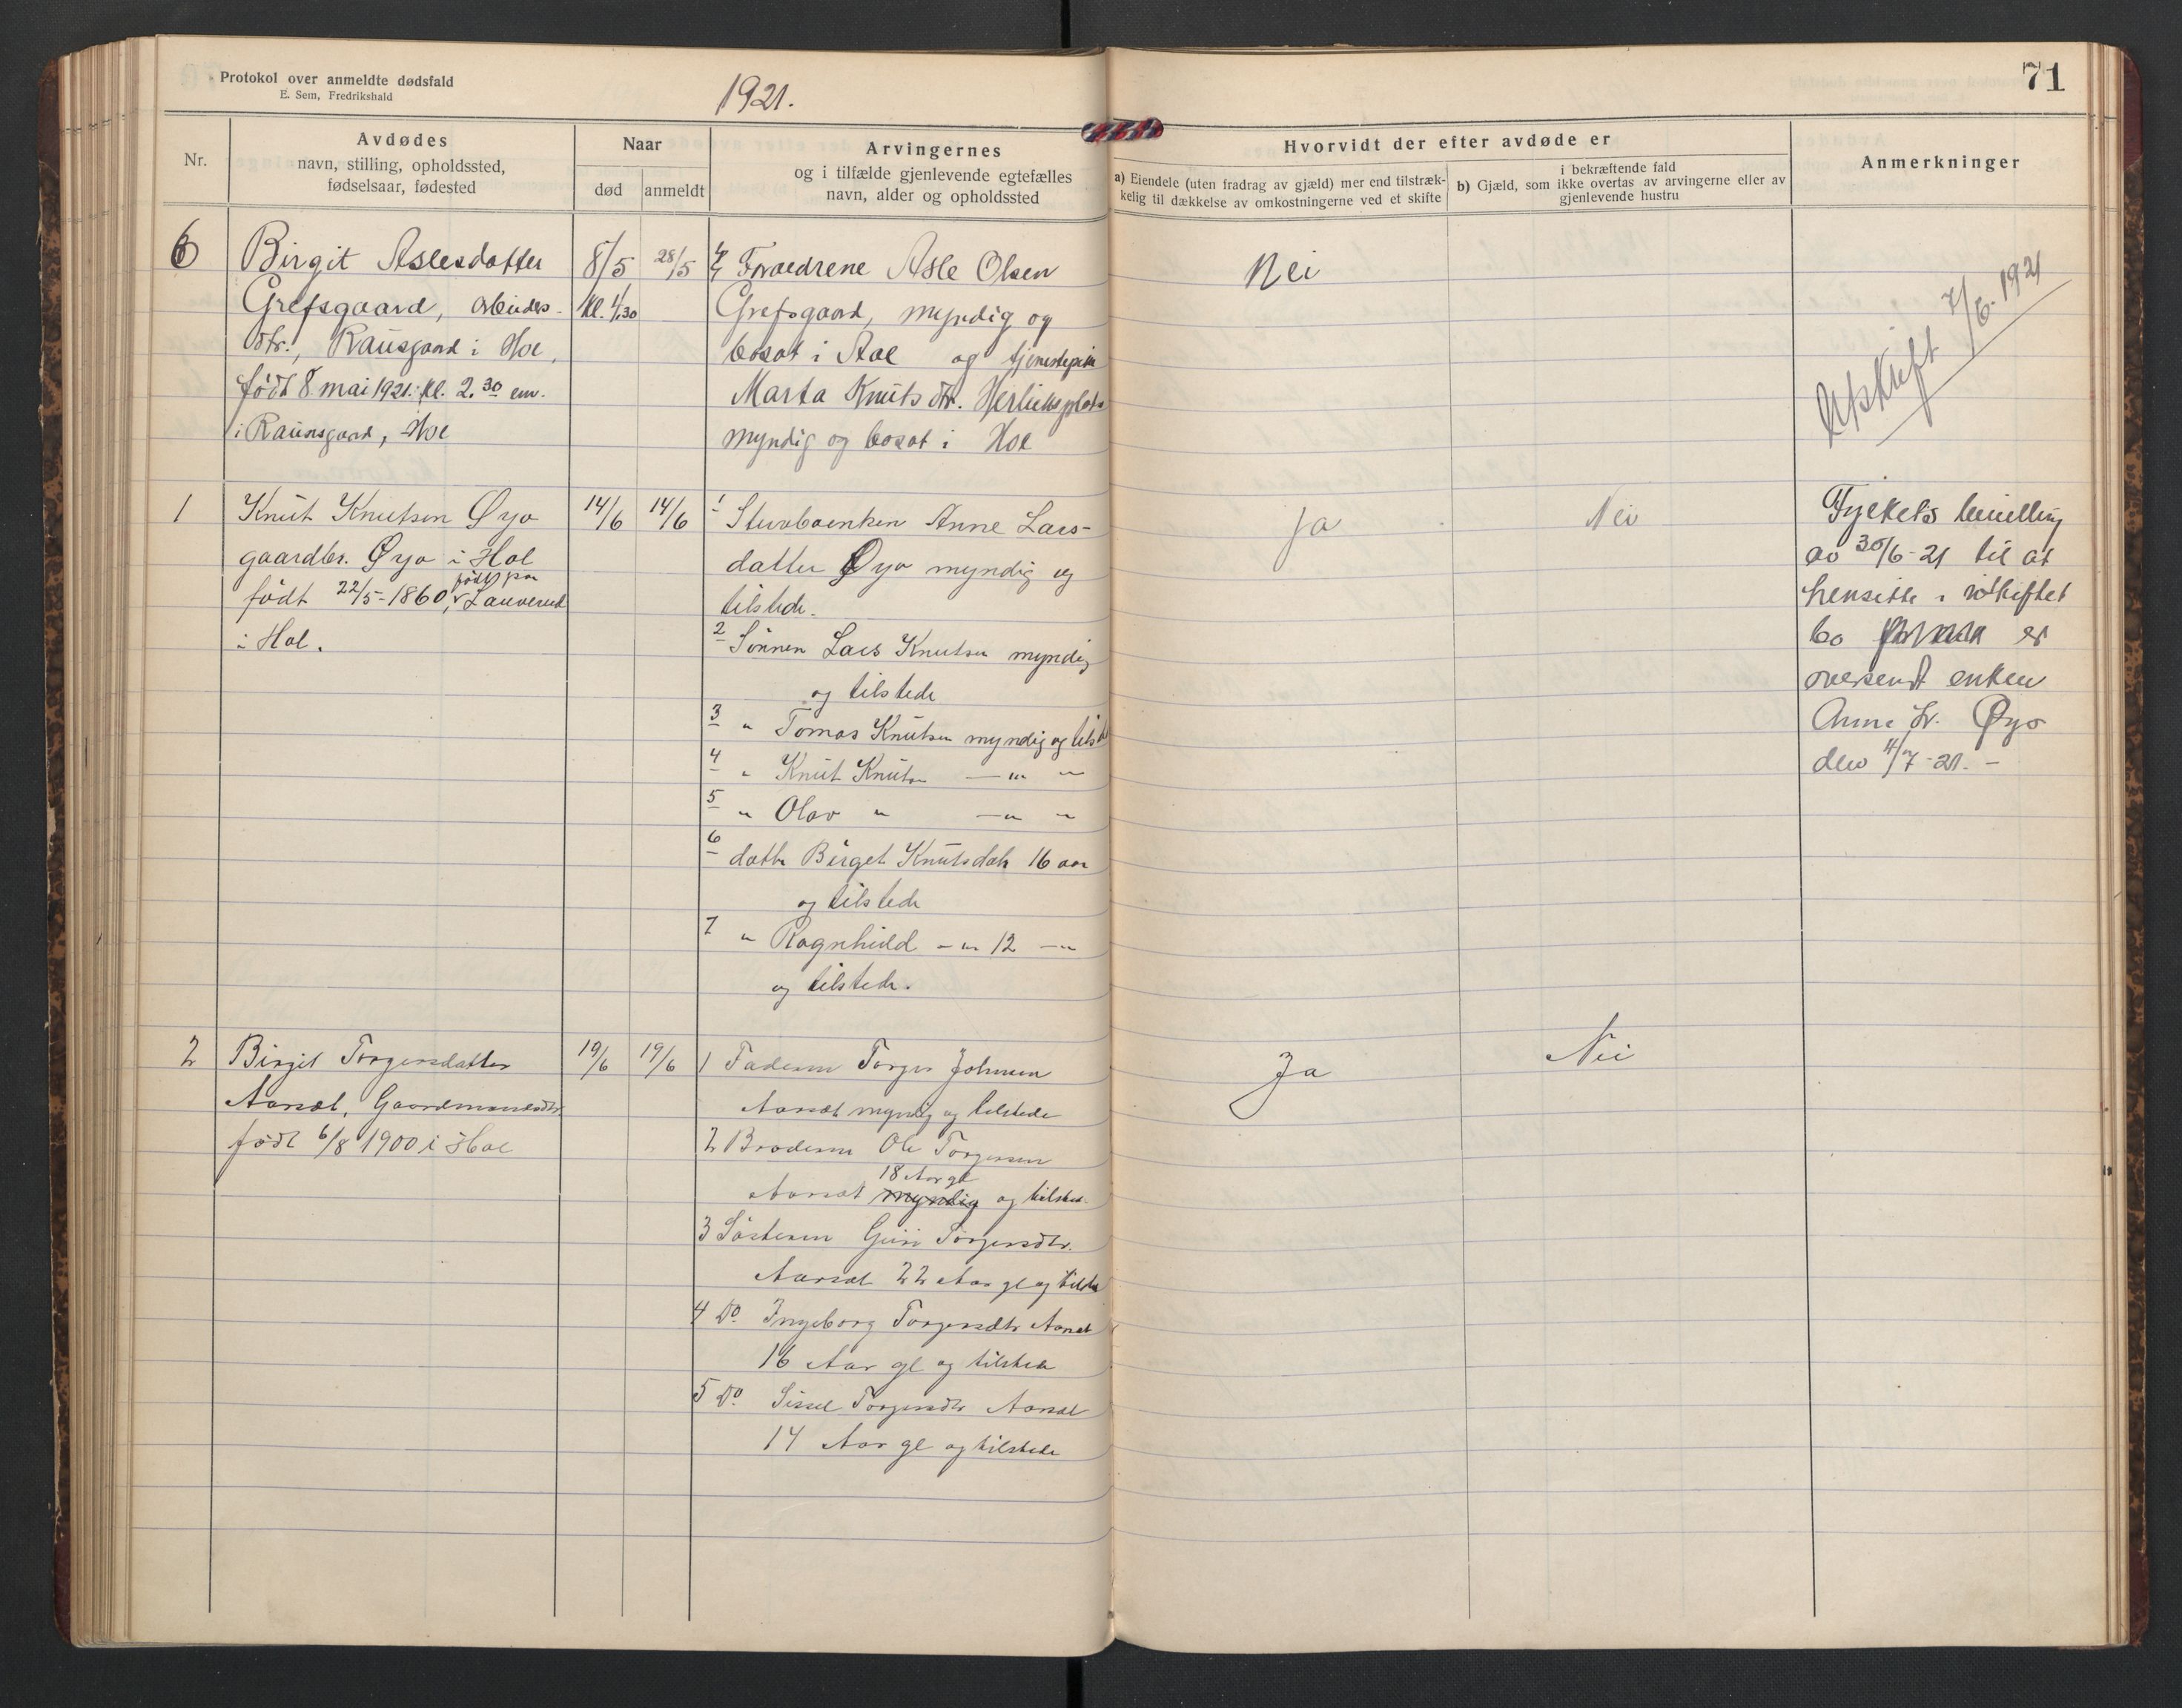 Protokol over anmeldte dødsfald
E. Sem, Fredrikshald
1921.
71
Nr.
Avdødes
navn, stilling, opholdssted,
fødselsaar, fødested
Naar
død
anmeldt
Arvingernes
og i tilfælde gjenlevende egtefælles
navn, alder og opholdssted
Hvorvidt der efter avdøde er
a) Eiendele (uten fradrag av gjæld) mer end tilstræk-
kelig til dækkelse av omkostningerne ved et skifte
i bekræftende fald
b) Gjæld, som ikke overtas av arvingerne eller av
gjenlevende hustru
Anmerkninger
6
Birgit Aslesdatter
Grefsgaard, arbeider-
dtr., Raunsgaard i Hol,
født 8 mai 1921 kl. 2.30 em.
i Raunsgaard, Hol
8/5
kl. 4,30
28/5
Foraedrene Asle Olsen
Grefsgaard, myndig og
bosat i Aal og tjenestepike
Marta Knuts dtr. Herlieksplads
myndig og bosat i Hol
Nei
Utskrift 7/6. 1921
1
Knut Knutsen Øyo
gaardbr. Øyo i Hol
født på
født 22/5-1860, Lauverud
i Hol.
14/6
14/6
1 Skiveboenken Anne Lars-
datter Øyo myndig og
tilstede.
2 Sønnen Lars Knutsen myndig
og tilstede
3 " Tomas Knutsen myndig og tilst
4 " Knut Knutsen — " "
5 " Olav " — " "
6 datter Birget Knutsdatr 16 aar
og tilstede
7 " Ragnhild — " 12 — "
og tilstede.
Ja
Nei
Fylkets bevilling
av 30/6-21 til at
hensitte i uskiftet
bo er
oversendt enken
Anne L. Øyo
den 4/7-21. -
2
Birgit Torgersdatter
Aarset, Gaardmandsdtr
født 6/8 1900 i Hol
19/6
19/6
1 Faderen Torger Johnsen
Aarset myndig og tilstede
2 Broderen Ole Torgersen
18 Aar gl
Aarset myndig og tilsted.
3 Søsteren Guri Torgersdtr.
Aarset 22 Aar gl og tilsted
4 Do. Ingeborg Torgersdtr Aarset
16 Aar gl og tilstede
5 Do. Sissel Torgersdtr Aarset
14 Aar gl og tilstede
Ja
Nei